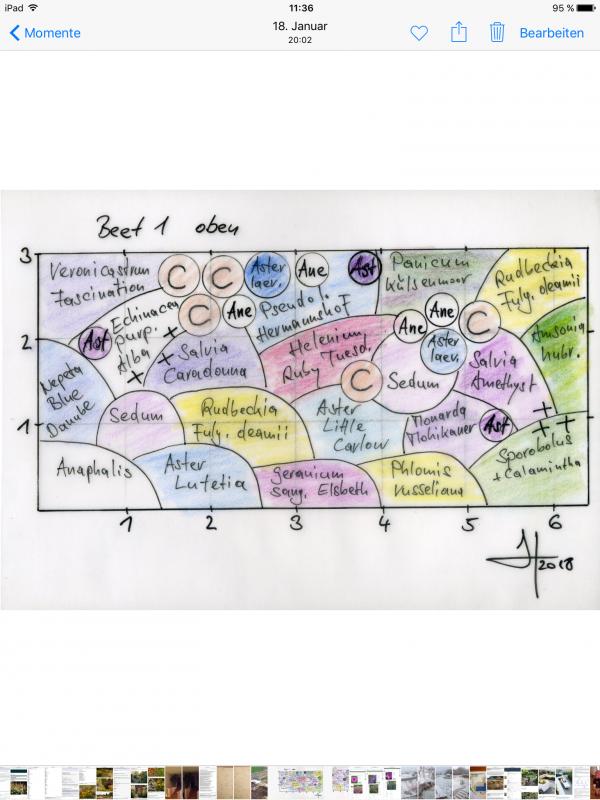 iPad
11:36
95 %
Momente
18. Januar
20:02
Bearbeiten
Beet 1 oben
3
2
1
Veronicastrum
Fascination
C
C
Aster
laev.
Ane
Ast
Panicum
Külsenmoor
Rudbeckia
Fulg. deamii
Echinacea
purp.
Alba
C
Ane
Pseudo
Hermannshof
Ane
Ane
C
Amsonia
hubr.
Ast
Salvia
Caradonna
Helenium
Ruby Tuesd.
C
Sedum
Aster
laev.
Salvia
Amethyst
Nepeta
Blue
Danube
Sedum
Rudbeckia
Fulg. deamii
Aster
Little
Carlow
Monarda
Mohikaner
Ast
Anaphalis
Aster
Lutetia
Geranium
sang. Elsbeth
Phlomis
russeliana
Sporobolus
+ Calamintha
1
2
3
4
5
6
2018